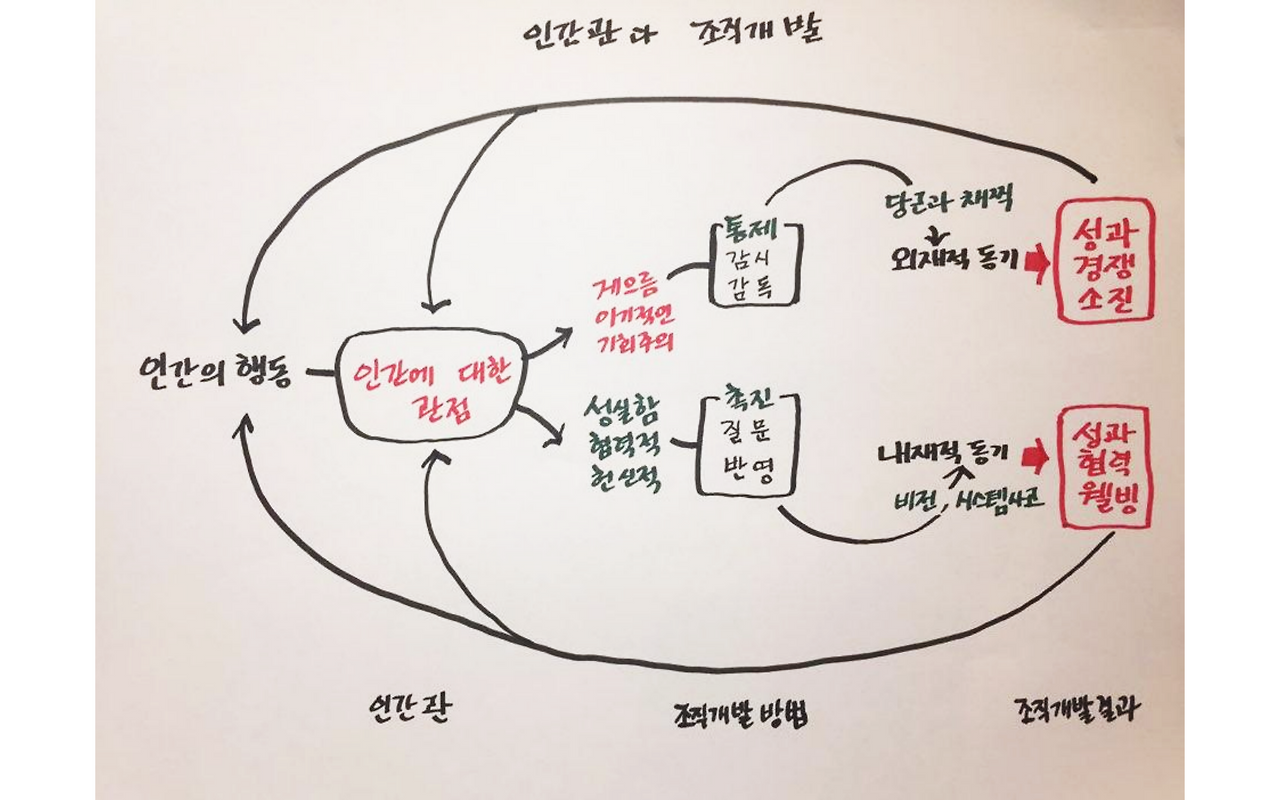 인간관과 조직개발
당근과 채찍
외재적 동기
성과
경쟁
소진
통제
감시
감독
게으름
이기적인
기회주의
인간의 행동
인간에 대한
관점
성실함
협력적
헌신적
촉진
질문
반영
내재적 동기
비전, 시스템사고
성과
협력
웰빙
인간관
조직개발 방법
조직개발결과